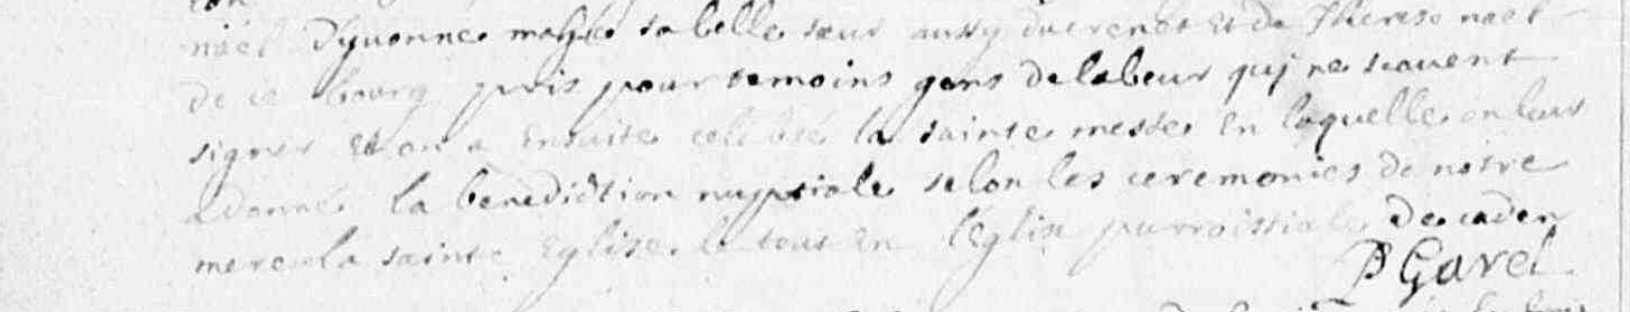 noel d'yvonne mahé sa belle sœur aussy du vener et de Therese noel
de ce bourg pris pour temoins gens de labeur qui ne scavent
signer et on a ensuite celebré la sainte messe en laquelle on leur
a donné la benediction nuptiale selon les ceremonies de notre
mere la sainte Eglise le tout en l'Eglise parroissiale de caden
P Garel